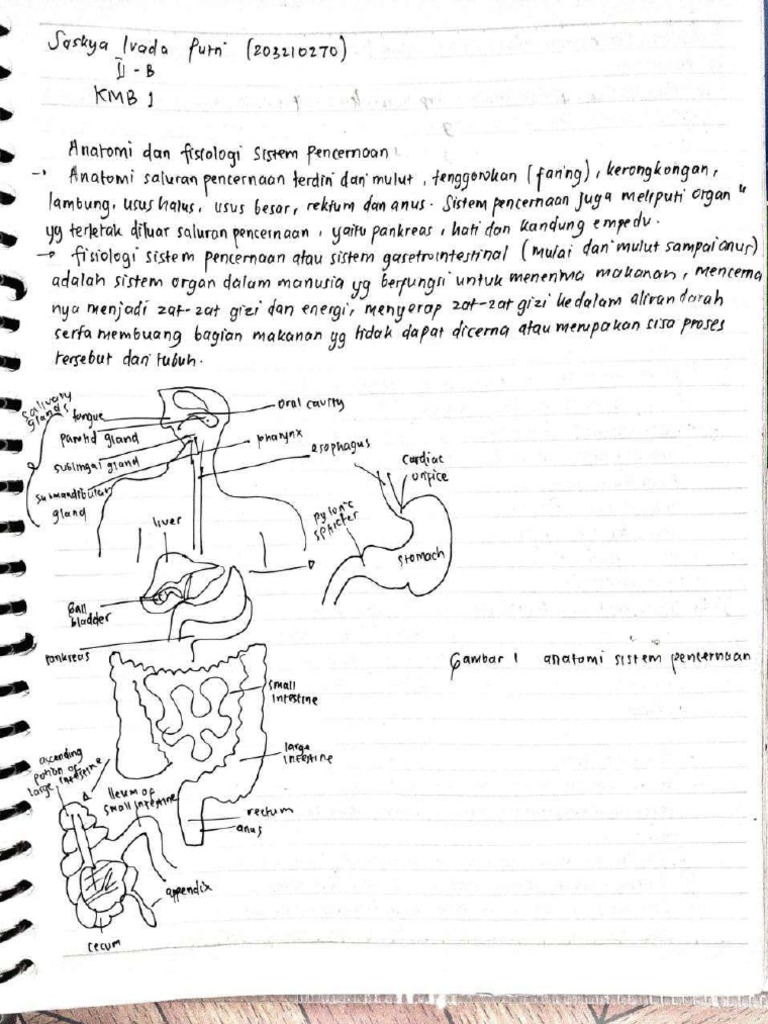 Saskya Ivada Putri (203210270)
II - B
KMB 1
Anatomi dan fisiologi sistem pencernaan
→ Anatomi saluran pencernaan terdiri dari mulut, tenggorokan (faring), kerongkongan,
lambung, usus halus, usus besar, rektum dan anus. Sistem pencernaan juga meliputi organ"
yg terletak diluar saluran pencernaan, yaitu pankreas, hati dan kandung empedu.
→ fisiologi sistem pencernaan atau sistem gasetrointestinal (mulai dari mulut sampai anus)
adalah sistem organ dalam manusia yg berfungsi untuk menerima makanan, mencerna
nya menjadi zat-zat gizi dan energi, menyerap zat-zat gizi kedalam aliran darah
serta membuang bagian makanan yg tidak dapat dicerna atau merupakan sisa proses
tersebut dari tubuh.
salivary
glands
tongue
oral cavity
parotid gland
pharynx
esophagus
sublingal gland
cardiac
orifice
submandibular
gland
liver
pyloric
sphicter
stomach
Gall
bladder
pankreas
Gambar 1 anatomi sistem pencernaan
small
intestine
large
intestine
ascending
potion of
large intestine
Ileum of
small intestine
rectum
anus
appendix
cecum